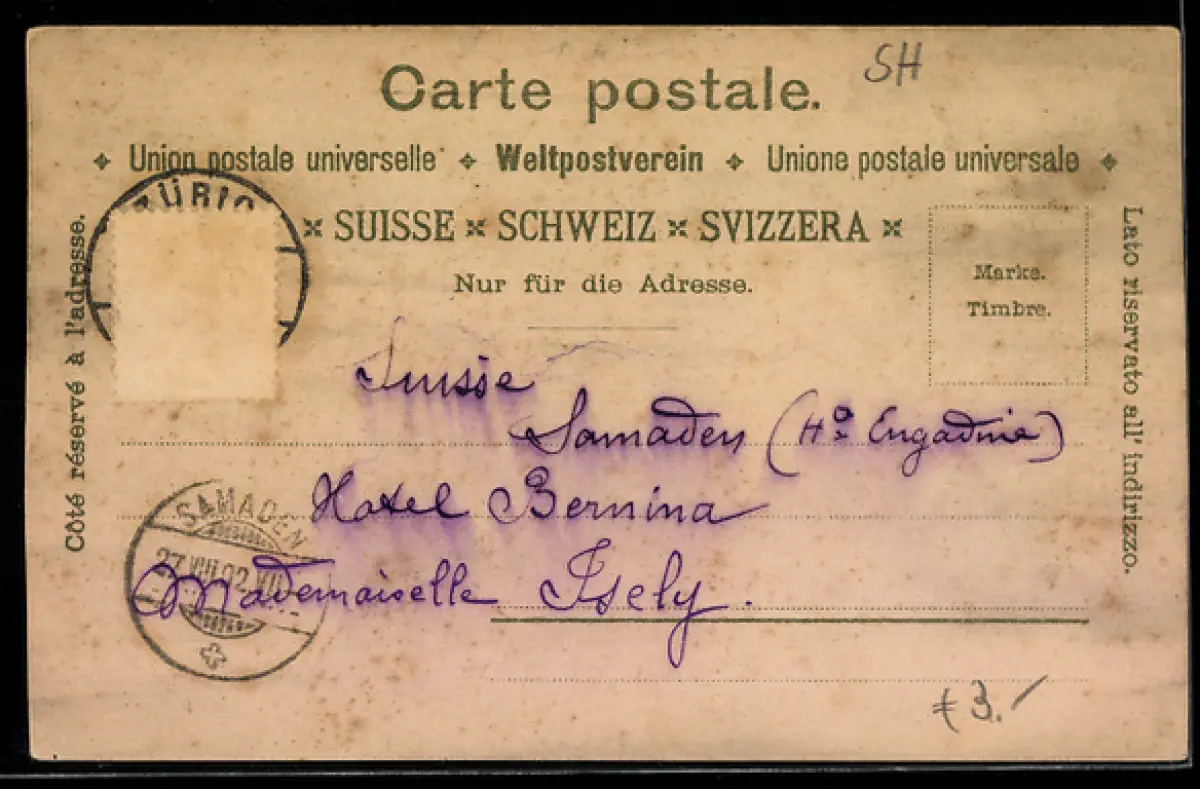 SH
Carte postale.
Union postale universelle Weltpostverein Unione postale universale
ZÜRIC
SUISSE SCHWEIZ SVIZZERA
Nur für die Adresse.
Marke.
Timbre.
Côté réservé à l'adresse.
Lato riservato all' indirizzo.
Suisse
Samaden (Hte Engadine)
Hotel Bernina
SAMADEN
27.VIII.02.VII
Mademoiselle Isely.
€ 3.-